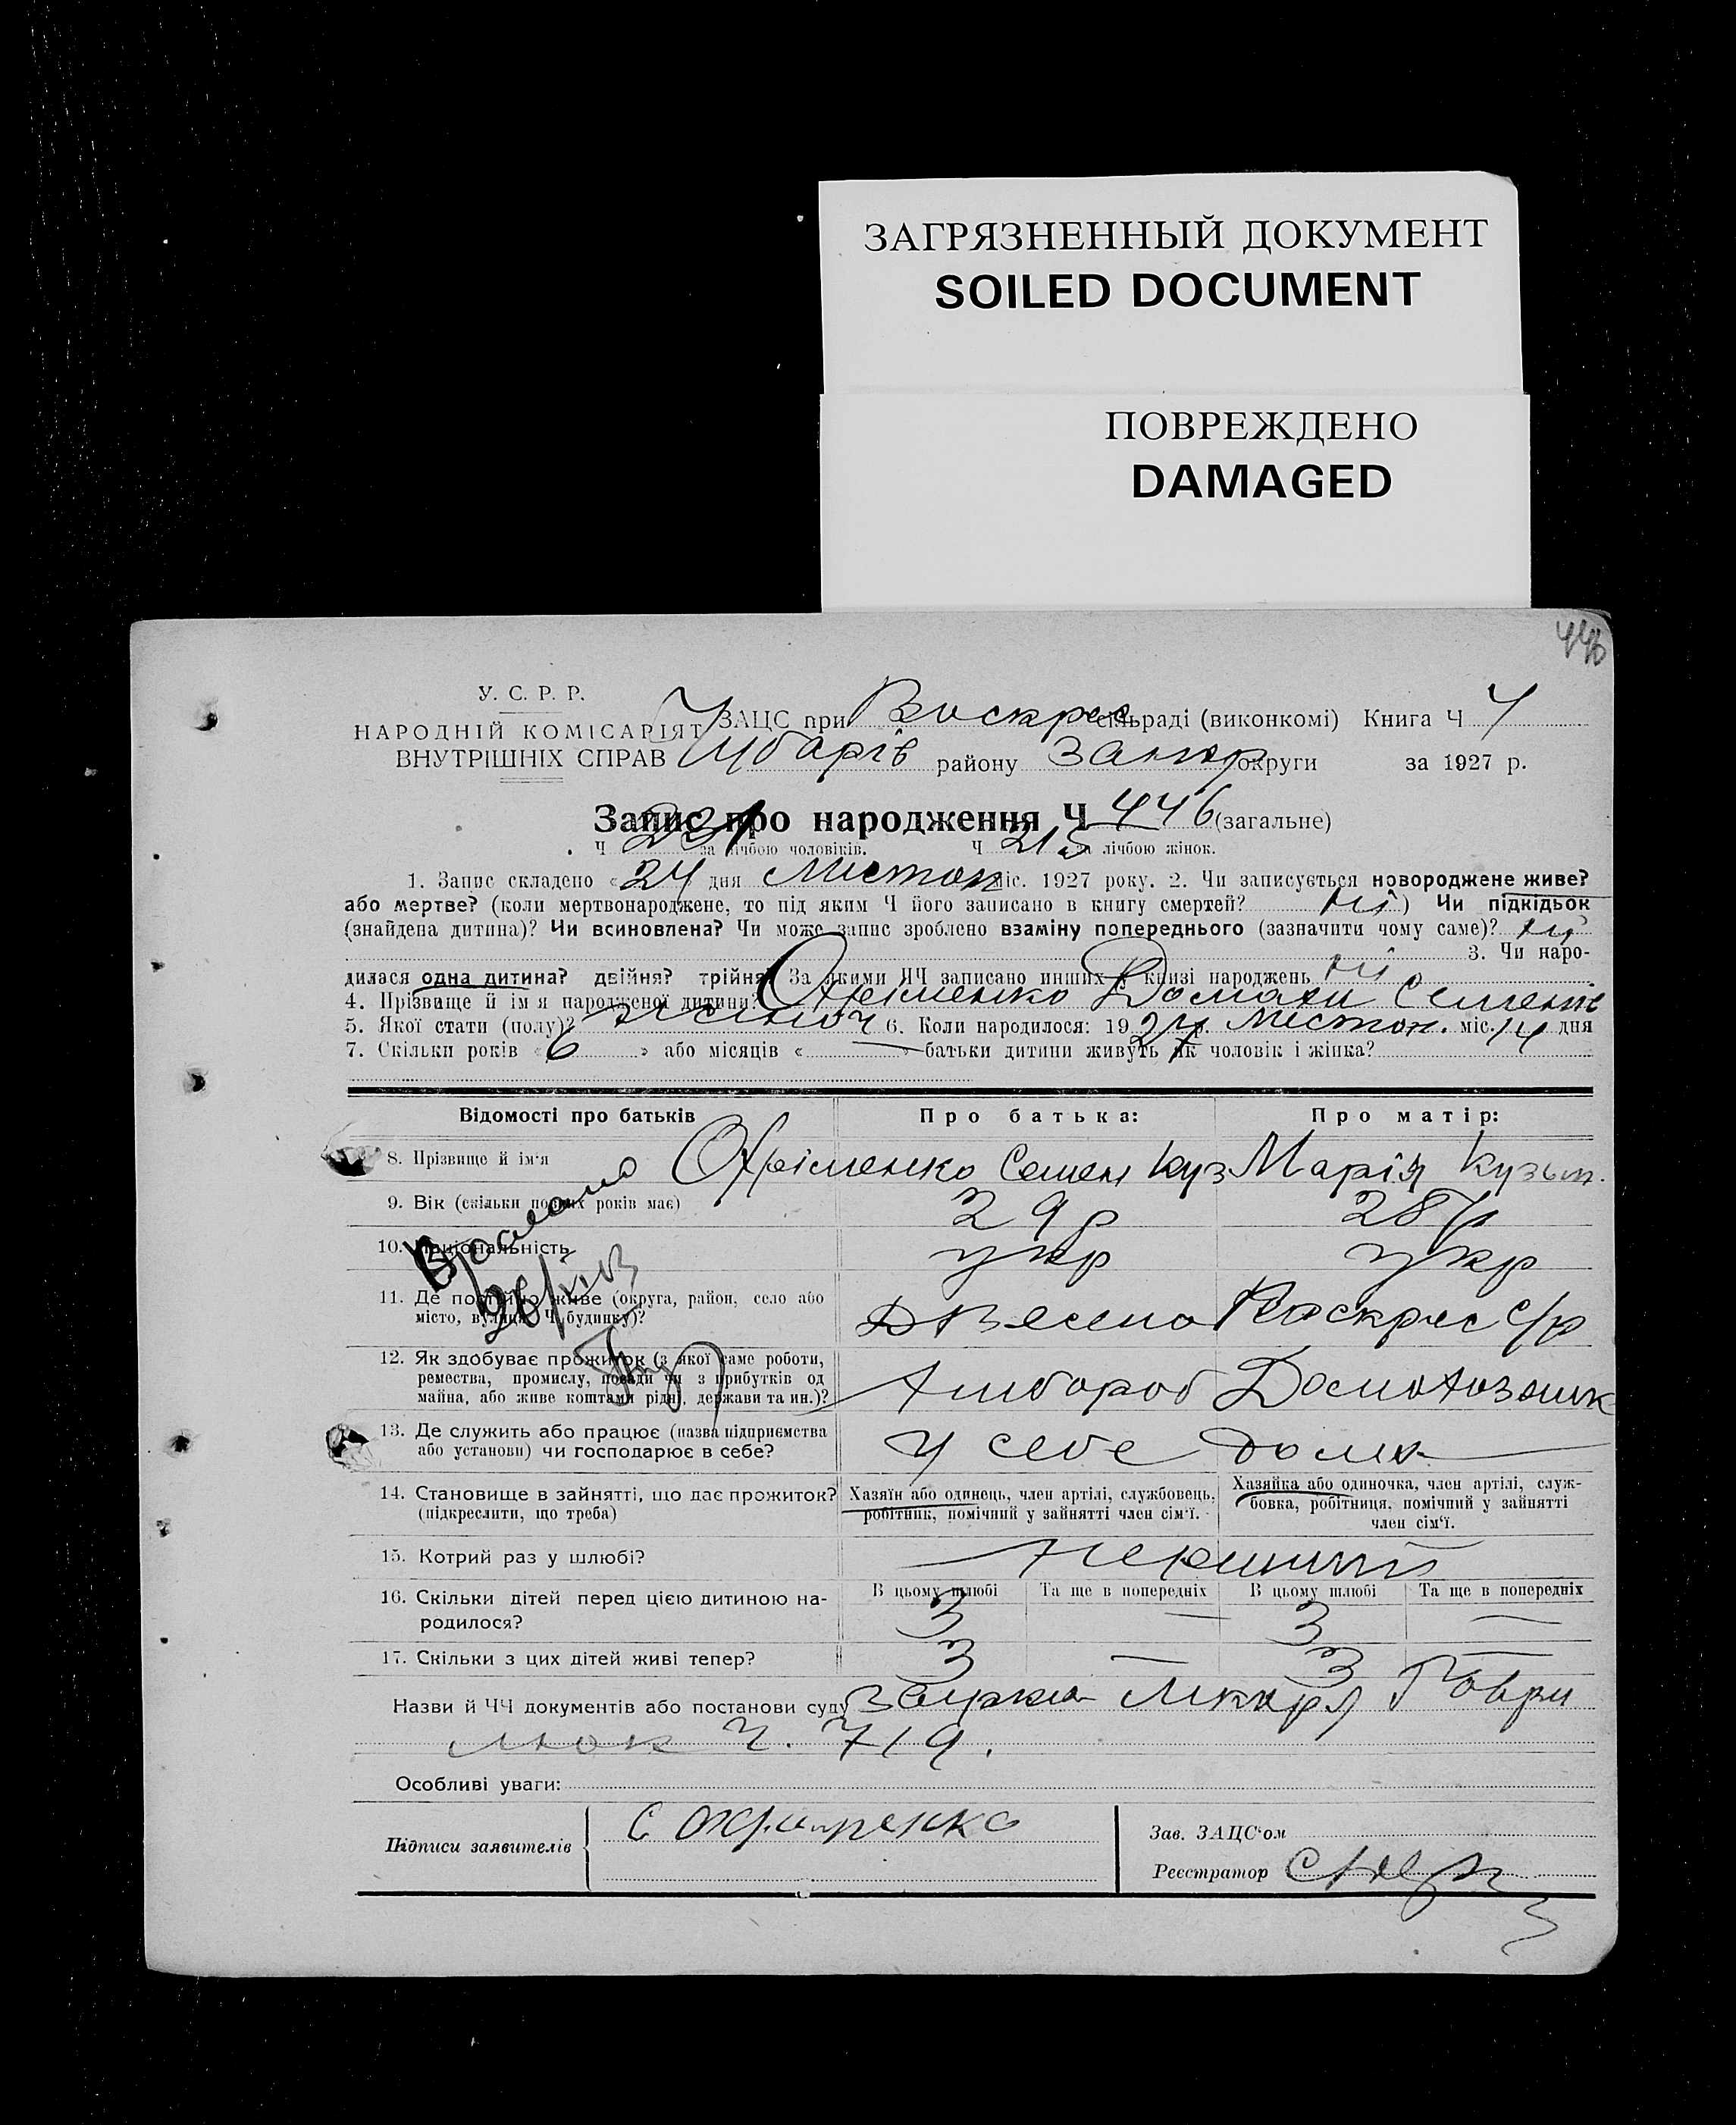 ЗАГРЯЗНЕННЫЙ ДОКУМЕНТ
SOILED DOCUMENT
ПОВРЕЖДЕНО
DAMAGED
446
У. С. Р. Р.
НАРОДНІЙ КОМІСАРІЯТ
ВНУТРІШНІХ СПРАВ
ЗАЦС при Воскрес сільраді (виконкомі) Книга Ч 4
Чубарів району Запор округи за 1927 р.
Запис про народження Ч 446 (загальне)
Ч 231 за лічбою чоловіків. Ч 215 за лічбою жінок.
1. Запис складено «24» дня Листоп міс. 1927 року. 2. Чи записується новороджене живе?
або мертве? (коли мертвонароджене, то під яким Ч його записано в книгу смертей? ні) Чи підкідьок
(знайдена дитина)? Чи всиновлена? Чи може запис зроблено взаміну попереднього (зазначити чому саме)? ні
3. Чи наро-
дилася одна дитина? двійня? трійня? За якими ЧЧ записано инших в книзі народжень ні
4. Прізвище й ім'я народженої дитини? Охріменко Домахи Семенів
5. Якої стати (полу)? жіноч 6. Коли народилося: 1927 р. Листоп. міс. 14 дня
7. Скільки років «6» або місяців « — » батьки дитини живуть як чоловік і жінка?
Відомості про батьків Про батька: Про матір:
8. Прізвище й ім'я Охріменко Семен Куз Марія Кузьм.
9. Вік (скільки повних років має) 29 р 28 р
10. Національність укр укр
11. Де постійно живе (округа, район, село або
місто, вулиця, Ч будинку)? Воскрес с/р
12. Як здобуває прожиток (з якої саме роботи,
ремества, промислу, посади чи з прибутків од
майна, або живе коштами рідні, держави та ин.)? Хлібороб Домохозяйк
13. Де служить або працює (назва підприємства
або установи) чи господарює в себе? У себе дома
14. Становище в зайнятті, що дає прожиток?
(підкреслити, що треба)
Хазяїн або одинець, член артілі, службовець,
робітник, помічний у зайнятті член сім'ї.
Хазяйка або одиночка, член артілі, служ-
бовка, робітниця, помічний у зайнятті
член сім'ї.
15. Котрий раз у шлюбі? Первий
16. Скільки дітей перед цією дитиною на-
родилося?
В цьому шлюбі Та ще в попередніх В цьому шлюбі Та ще в попередніх
3 — 3 —
17. Скільки з цих дітей живі тепер? 3 — 3 —
Назви й ЧЧ документів або постанови суду
Ч. 719.
Особливі уваги:
Підписи заявителів
Зав. ЗАЦС'ом
Реєстратор